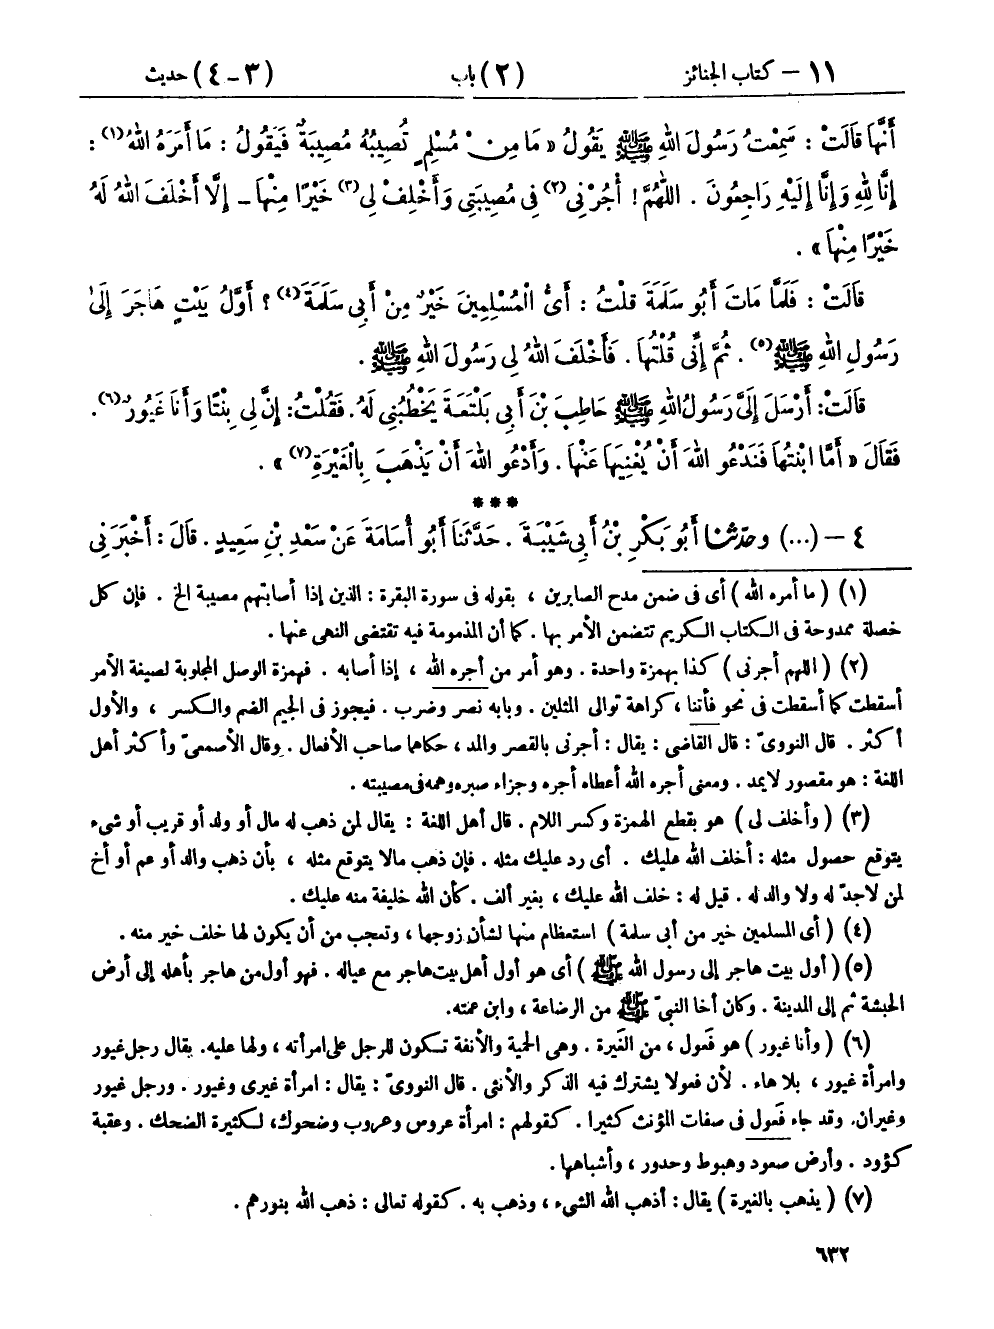 ١١ - كتاب الجنائز (٢) باب (٣-٤) حديث
أَنَّهَا قَالَتْ : سَمِعْتُ رَسُولَ اللهِ ﷺ يَقُولُ « مَا مِنْ مُسْلِمٍ تُصِيبُهُ مُصِيبَةٌ فَيَقُولُ : مَا أَمَرَهُ اللهُ(١) :
إِنَّا لِلهِ وَإِنَّا إِلَيْهِ رَاجِعُونَ . اللَّهُمَّ ! أْجُرْنِي(٢) فِي مُصِيبَتِي وَأَخْلِفْ لِي(٣) خَيْرًا مِنْهَا - إِلَّا أَخْلَفَ اللهُ لَهُ
خَيْرًا مِنْهَا » .
قَالَتْ : فَلَمَّا مَاتَ أَبُو سَلَمَةَ قُلْتُ : أَىُّ الْمُسْلِمِينَ خَيْرٌ مِنْ أَبِي سَلَمَةَ(٤) ؟ أَوَّلُ بَيْتٍ هَاجَرَ إِلَىٰ
رَسُولِ اللهِ ﷺ(٥) . ثُمَّ إِنِّى قُلْتُهَا . فَأَخْلَفَ اللهُ لِى رَسُولَ اللهِ ﷺ .
قَالَتْ: أَرْسَلَ إِلَىَّ رَسُولُ اللهِ ﷺ حَاطِبَ بْنَ أَبِي بَلْتَعَةَ يَخْطُبُنِي لَهُ. فَقُلْتُ: إِنَّ لِي بِنْتًا وَأَنَا غَيُورٌ(٦).
فَقَالَ « أَمَّا ابْنَتُهَا فَنَدْعُو اللهَ أَنْ يُغْنِيَهَا عَنْهَا . وَأَدْعُو اللهَ أَنْ يَذْهَبَ بِالْغَيْرَةِ(٧) » .
***
٤ - (...) وحدّثنا أَبُو بَكْرِ بْنُ أَبِي شَيْبَةَ . حَدَّثَنَا أَبُو أُسَامَةَ عَنْ سَعْدِ بْنِ سَعِيدٍ . قَالَ : أَخْبَرَنِي
(١) ( ما أمره الله ) أى فى ضمن مدح الصابرين ، بقوله فى سورة البقرة : الذين إذا أصابتهم مصيبة الخ . فإن كل
خصلة ممدوحة فى الكتاب الكريم تتضمن الأمر بها . كما أن المذمومة فيه تقتضى النهى عنها .
(٢) ( اللهم أجرنى ) كذا بهمزة واحدة . وهو أمر من أجره الله ، إذا أصابه . فهمزة الوصل المجلوبة لصيغة الأمر
أسقطت كما أسقطت فى نحو فأتنا ، كراهة توالى المثلين . وبابه نصر وضرب . فيجوز فى الجيم الضم والكسر ، والأول
أكثر . قال النووىّ : قال القاضى : يقال : أجرنى بالقصر والمد ، حكاهما صاحب الأفعال . وقال الأصمعىّ وأكثر أهل
اللغة : هو مقصور لايمد . ومعنى أجره الله أعطاه أجره وجزاء صبره وهمه فى مصيبته .
(٣) ( وأخلف لى ) هو بقطع الهمزة وكسر اللام . قال أهل اللغة : يقال لمن ذهب له مال أو ولد أو قريب أو شىء
يتوقع حصول مثله : أخلف الله عليك . أى رد عليك مثله . فإن ذهب مالا يتوقع مثله ، بأن ذهب والد أو عم أو أخ
لمن لاجدّ له ولا والد له . قيل له : خلف الله عليك ، بغير ألف . كأن الله خليفة منه عليك .
(٤) ( أى المسلمين خير من أبى سلمة ) استعظام منها لشأن زوجها ، وتعجب من أن يكون لها خلف خير منه .
(٥) ( أول بيت هاجر إلى رسول الله ﷺ ) أى هو أول أهل بيت هاجر مع عياله . فهو أول من هاجر بأهله إلى أرض
الحبشة ثم إلى المدينة . وكان أخا النبىّ ﷺ من الرضاعة ، وابن عمته.
(٦) ( وأنا غيور ) هو فَعول ، من الغَيرة . وهى الحمية والأنفة تكون للرجل على امرأته ، ولها عليه. يقال رجل غيور
وامرأة غيور ، بلا هاء . لأن فعولا يشترك فيه الذكر والأنثى . قال النووىّ : يقال : امرأة غيرى وغيور . ورجل غيور
وغيران. وقد جاء فَعول فى صفات المؤنث كثيرا . كقولهم : امرأة عروس وعروب وضحوك، لكثيرة الضحك . وعقبة
كؤود . وأرض صعود وهبوط وحدور ، وأشباهها .
(٧) ( يذهب بالغيرة ) يقال : أذهب الله الشىء ، وذهب به . كقوله تعالى : ذهب الله بنورهم .
٦٣٢